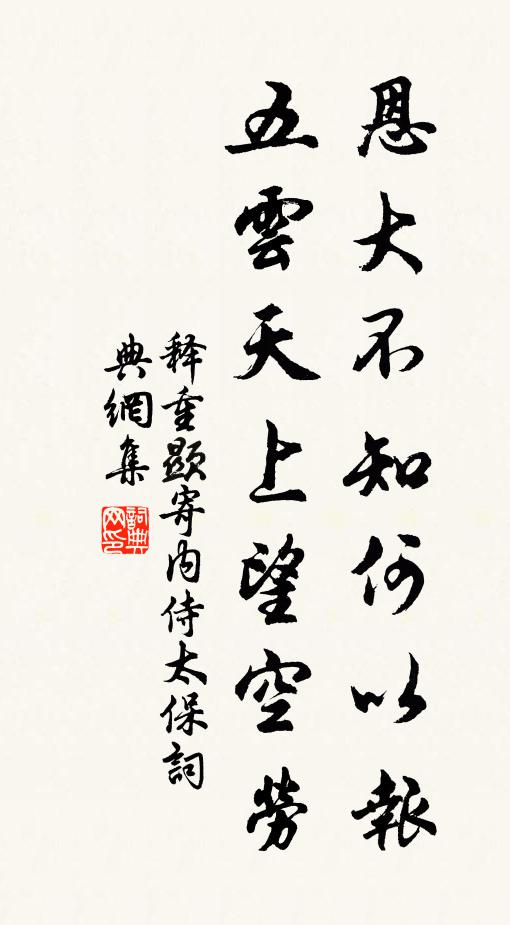 恩大不知何以報
五雲天上望空勞
释重顯寄内侍太保詞
典網集
詞典网印